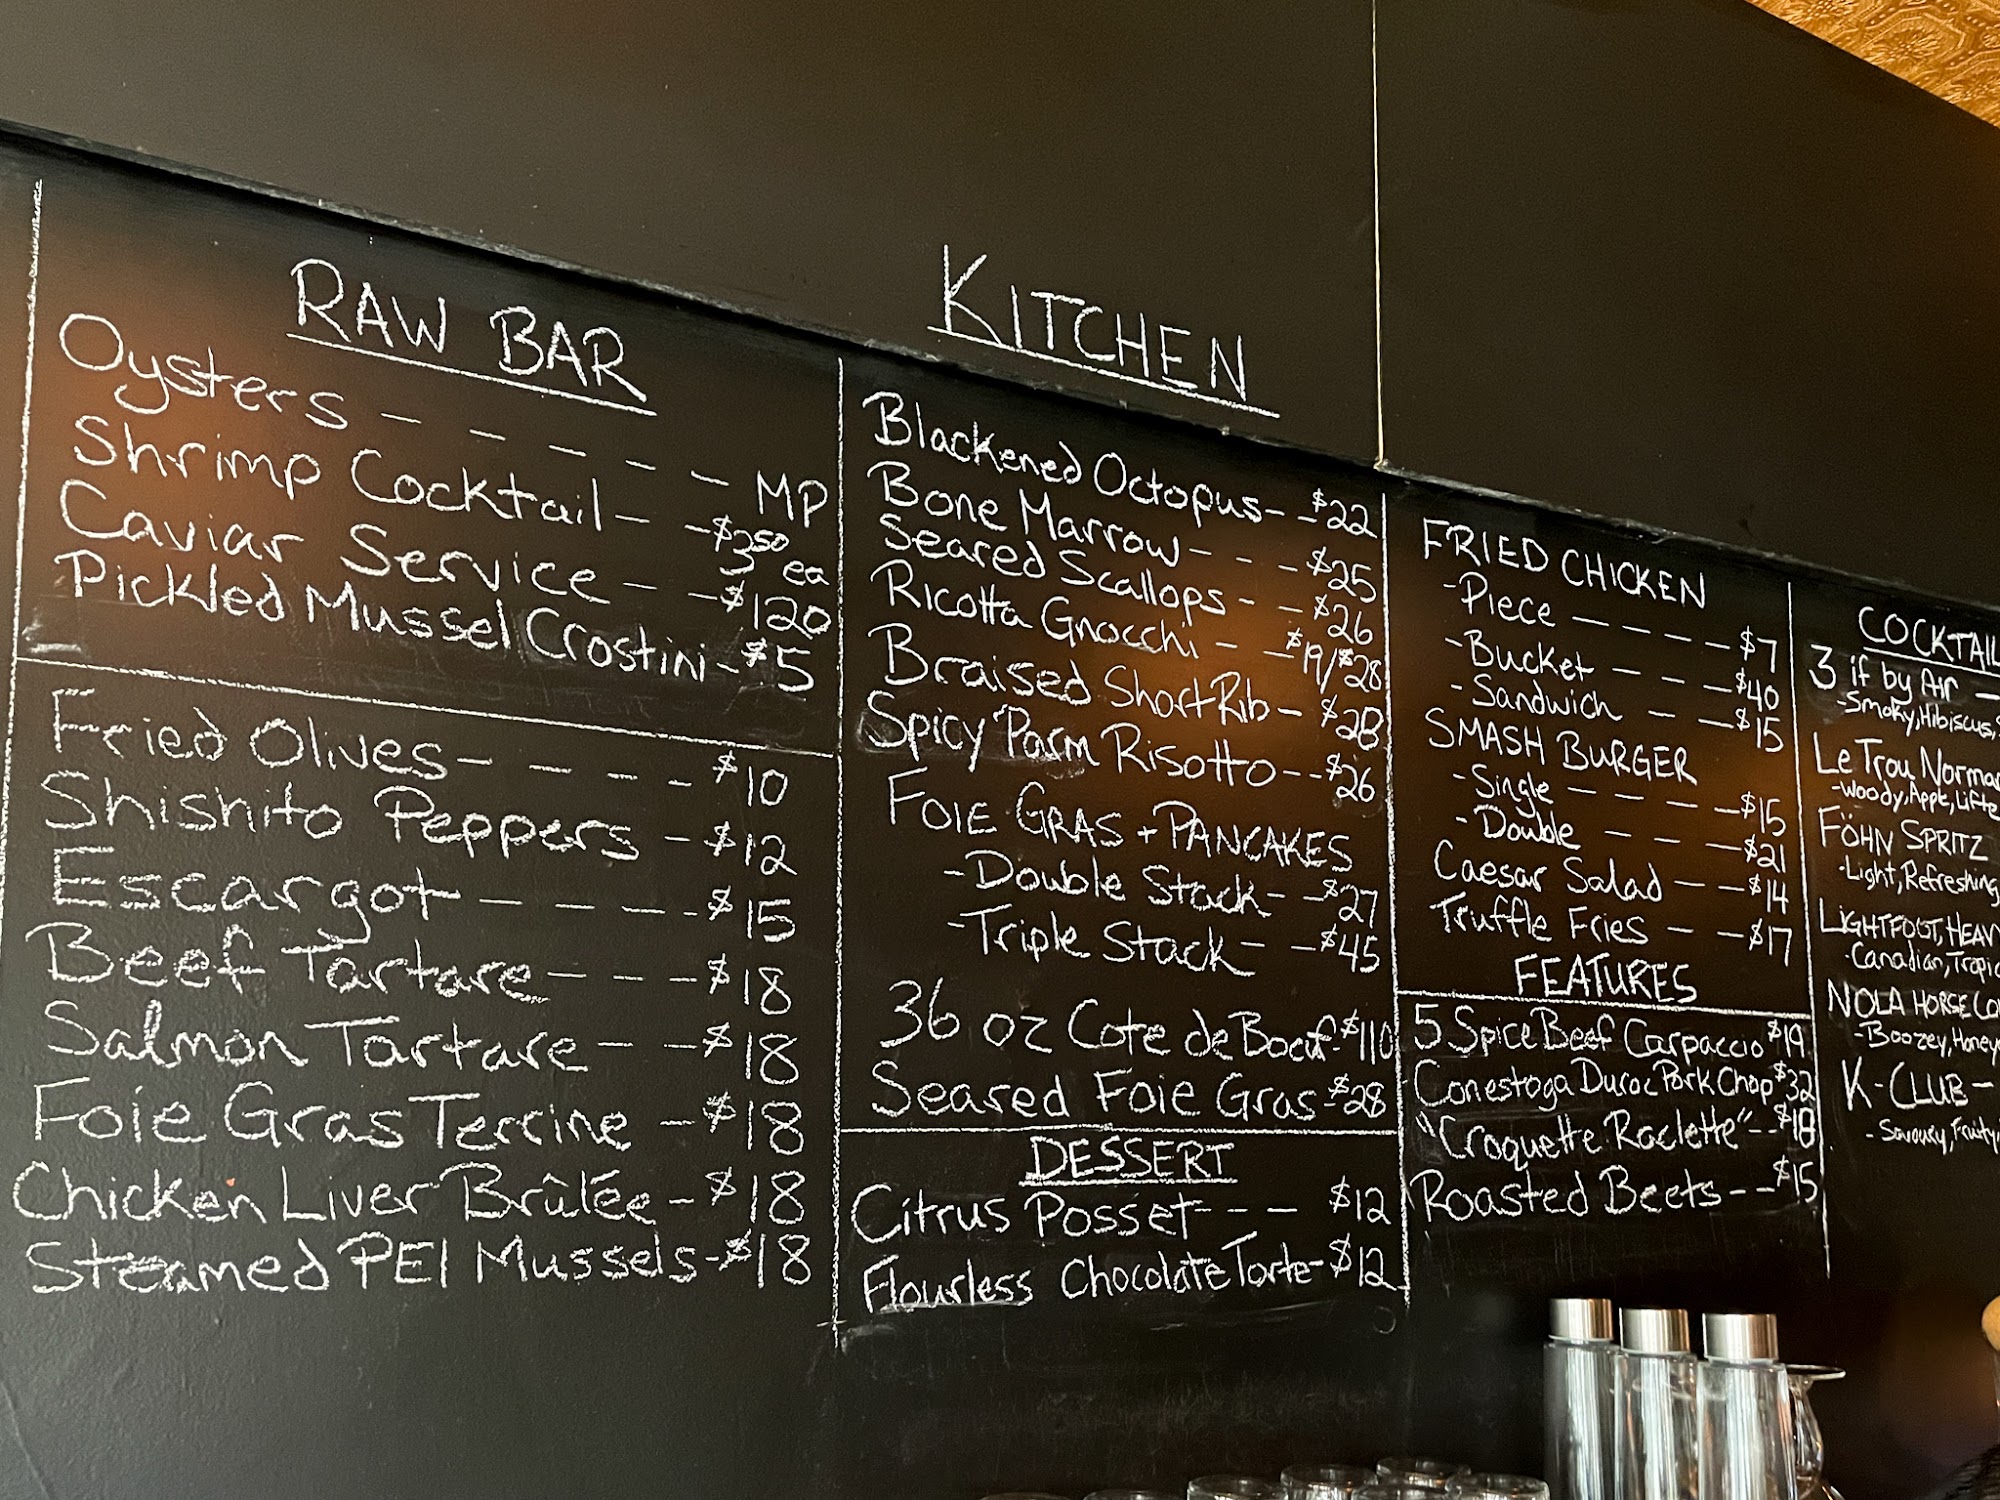 RAW BAR
Oysters - - - - - - MP
Shrimp Cocktail - - $3.50 ea
Caviar Service - - $120
Pickled Mussel Crostini - $5
Fried Olives - - - - $10
Shishito Peppers - $12
Escargot - - - - - $15
Beef Tartare - - - $18
Salmon Tartare - - $18
Foie Gras Terrine - $18
Chicken Liver Brûlée - $18
Steamed PEI Mussels - $18
KITCHEN
Blackened Octopus - - $22
Bone Marrow - - - $25
Seared Scallops - - $26
Ricotta Gnocchi - - $19/$28
Braised Short Rib - $28
Spicy Parm Risotto - - $26
FOIE GRAS + PANCAKES
- Double Stack - - $27
- Triple Stack - - $45
36 oz Cote de Boeuf - $110
Seared Foie Gras - $28
DESSERT
Citrus Posset - - - $12
Flourless Chocolate Torte - $12
FRIED CHICKEN
- Piece - - - - - $7
- Bucket - - - - $40
- Sandwich - - - $15
SMASH BURGER
- Single - - - - - $15
- Double - - - $21
Caesar Salad - - $14
Truffle Fries - - - $17
FEATURES
5 Spice Beef Carpaccio $19
Conestoga Duroc Pork Chop $32
"Croquette Raclette" - - $18
Roasted Beets - - - $15
COCKTAIL
3 if by Air -
- Smoky, Hibiscus,
Le Trou Norma
- Woody, Apple, Lifte
FÖHN SPRITZ
- Light, Refreshing,
LIGHTFOOT, HEAVY
- Canadian, Tropic
NOLA HORSE CO
- Boozey, Honey
K-CLUB -
- Savoury, Fruity,